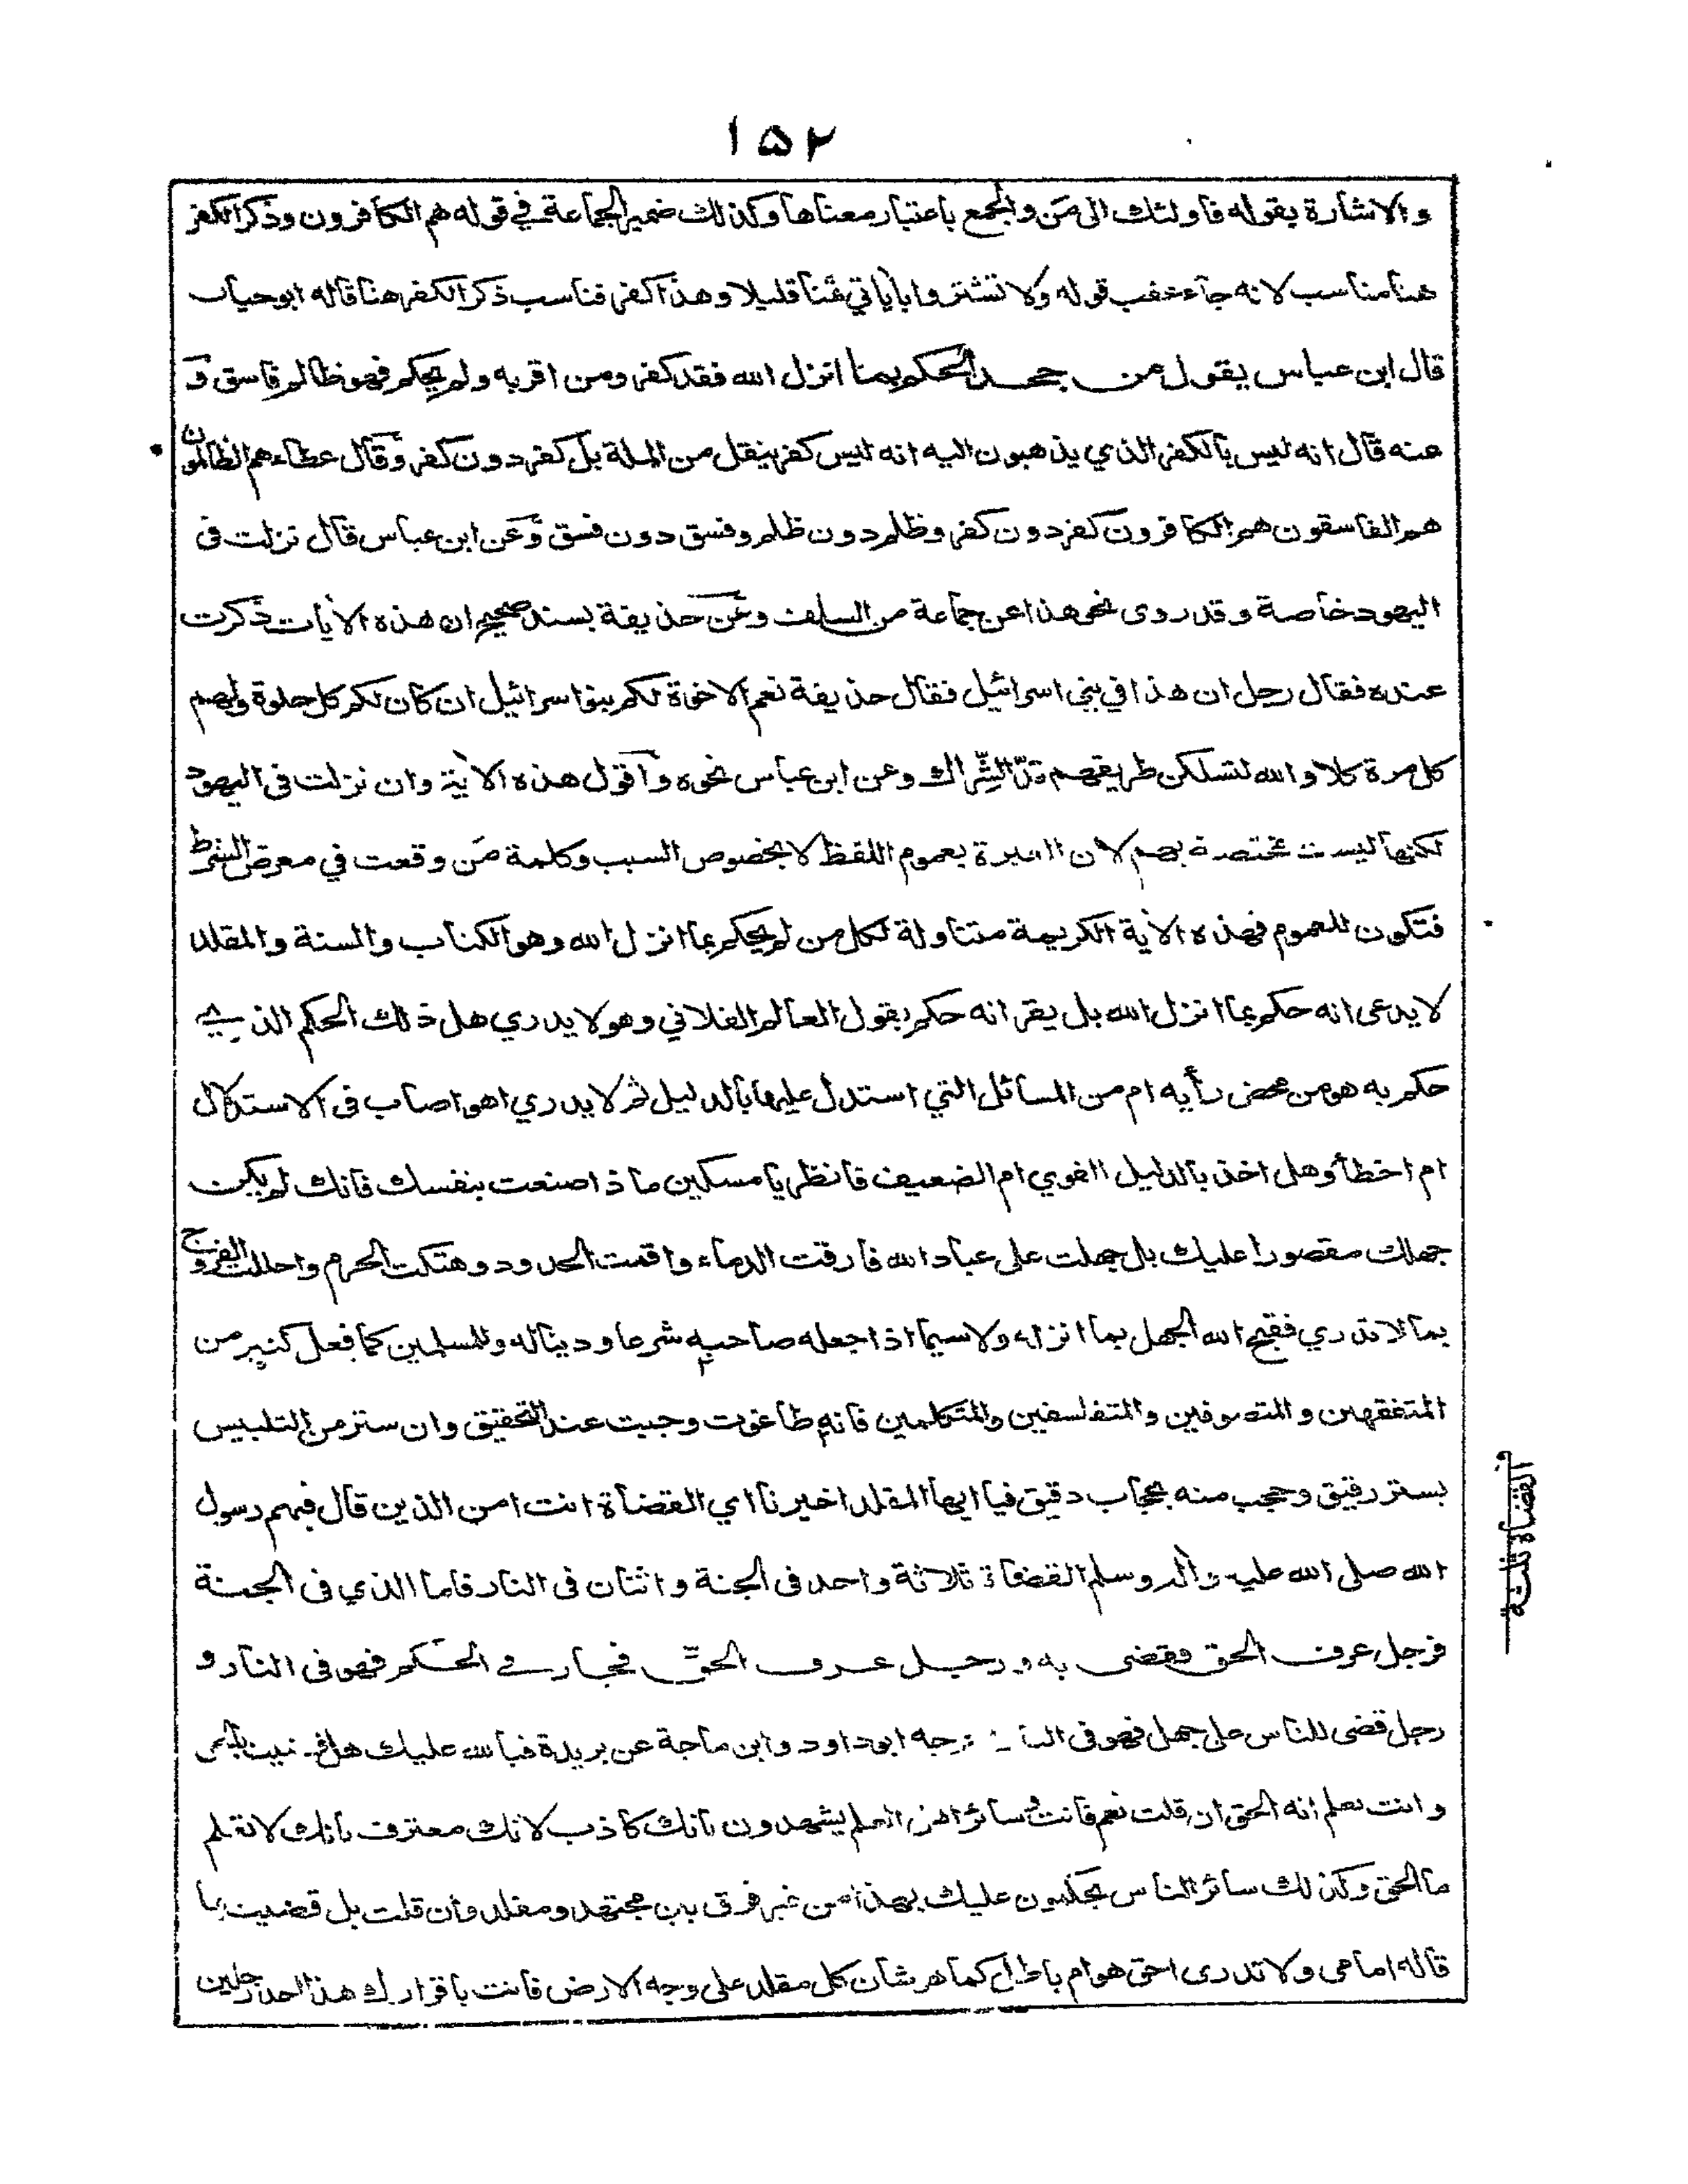 ١٥٢
والاشارة بقوله فاولئك الى مَن والجمع باعتبار معناها وكذلك ضمير الجماعة في قوله هم الكافرون وذكر الكفر
هنا مناسب لانه جآء عقب قوله ولا تشتروا بآياتي ثمنا قليلا وهذا كفر فناسب ذكر الكفر هنا قاله ابوحيان
قال ابن عباس يقول من جحد الحكم بما انزل الله فقد كفر ومن اقر به ولم يحكم فهو ظالم فاسق و
عنه قال انه ليس بالكفر الذي يذهبون اليه انه ليس كفر ينقل من الملة بل كفر دون كفر وقال عطاء هم الظالمون
هم الفاسقون هم الكافرون كفر دون كفر وظلم دون ظلم وفسق دون فسق وعن ابن عباس قال نزلت فى
اليهود خاصة وقد روى نحو هذا عن جماعة من السلف وعن حذيفة بسند صحيح ان هذه الآيات ذكرت
عنده فقال رجل ان هذا في بني اسرائيل فقال حذيفة نعم الاخوة لكم بنوا سرائيل ان كان لكم كل حلوة ولهم
كل مرة كلا والله لتسلكن طريقهم قدّ الشِّراك وعن ابن عباس نحوه واقول هذه الآية وان نزلت فى اليهود
لكنها ليست مختصة بهم لان العبرة بعموم اللفظ لا بخصوص السبب وكلمة مَن وقعت في معرض الشرط
فتكون للعموم فهذه الآية الكريمة متناولة لكل من لم يحكم بما انزل الله وهو الكتاب والسنة والمقلد
لا يدعى انه حكم بما انزل الله بل يقر انه حكم بقول العالم الفلاني وهو لا يدري هل ذلك الحكم الذي
حكم به هو من محض رأيه ام من المسائل التي استدل عليها بالدليل ثم لا يدري اهو اصاب فى الاستدلال
ام اخطأ وهل اخذ بالدليل القوي ام الضعيف فانظر يا مسكين ما ذا صنعت بنفسك فانك لم يكن
جهلك مقصورا عليك بل جهلت على عباد الله فارقت الدماء واقمت الحدود وهتكت الحرم واحللت الفروج
بما لا تدري فقبح الله الجهل بما انزله ولا سيما اذا جعله صاحبه شرعا ودينا له وللمسلمين كما فعل كثير من
المتفقهين والمتصوفين والمتفلسفين والمتكلمين فانه طاغوت وجبت عند التحقيق وان ستر من التلبيس
بستر رقيق وحجب منه بحجاب دقيق فيا ايها المقلد اخبرنا اي القضاة انت امن الذين قال فيهم رسول
الله صلى الله عليه وآله وسلم القضاة ثلاثة واحد فى الجنة واثنان فى النار فاما الذي فى الجنة
فرجل عرف الحق فقضى به ورجل عرف الحق فجار في الحكم فهو فى النار و
رجل قضى للناس على جهل فهو فى النار اخرجه ابوداود وابن ماجة عن بريدة فبالله عليك هل قضيت بالحق
وانت تعلم انه الحق ان قلت نعم فانت وسائر اهل العلم يشهدون بانك كاذب لانك معترف بانك لا تعلم
ما الحق وكذلك سائر الناس يحكمون عليك بهذا من غير فرق بين مجتهد ومقلد وان قلت بل قضيت بما
قاله امامى ولا تدرى احق هو ام باطل كما هو شان كل مقلد على وجه الارض فانت باقرارك هذا احد رجلين
القضاة ثلثة